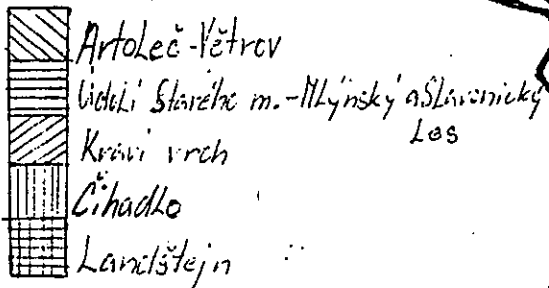 Artoleč-Větrov
Údolí Starého m.-Mlýnský a Slavonický
Les
Kraví vrch
Čihadlo
Landštejn